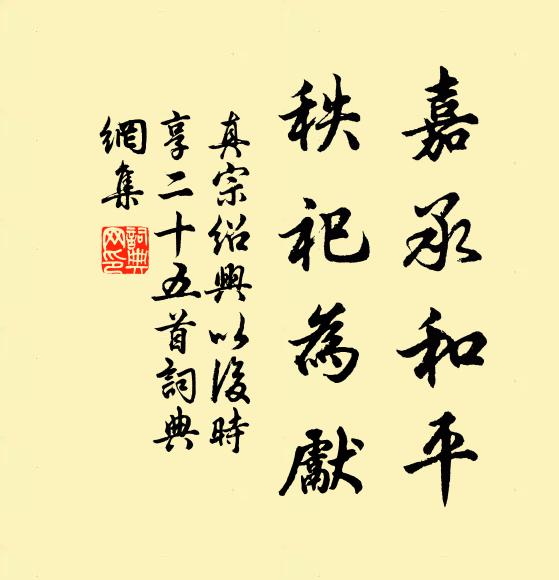 嘉承和平
秩祀為獻
真宗紹興以後時
享二十五首詞典
網集
詞典網印